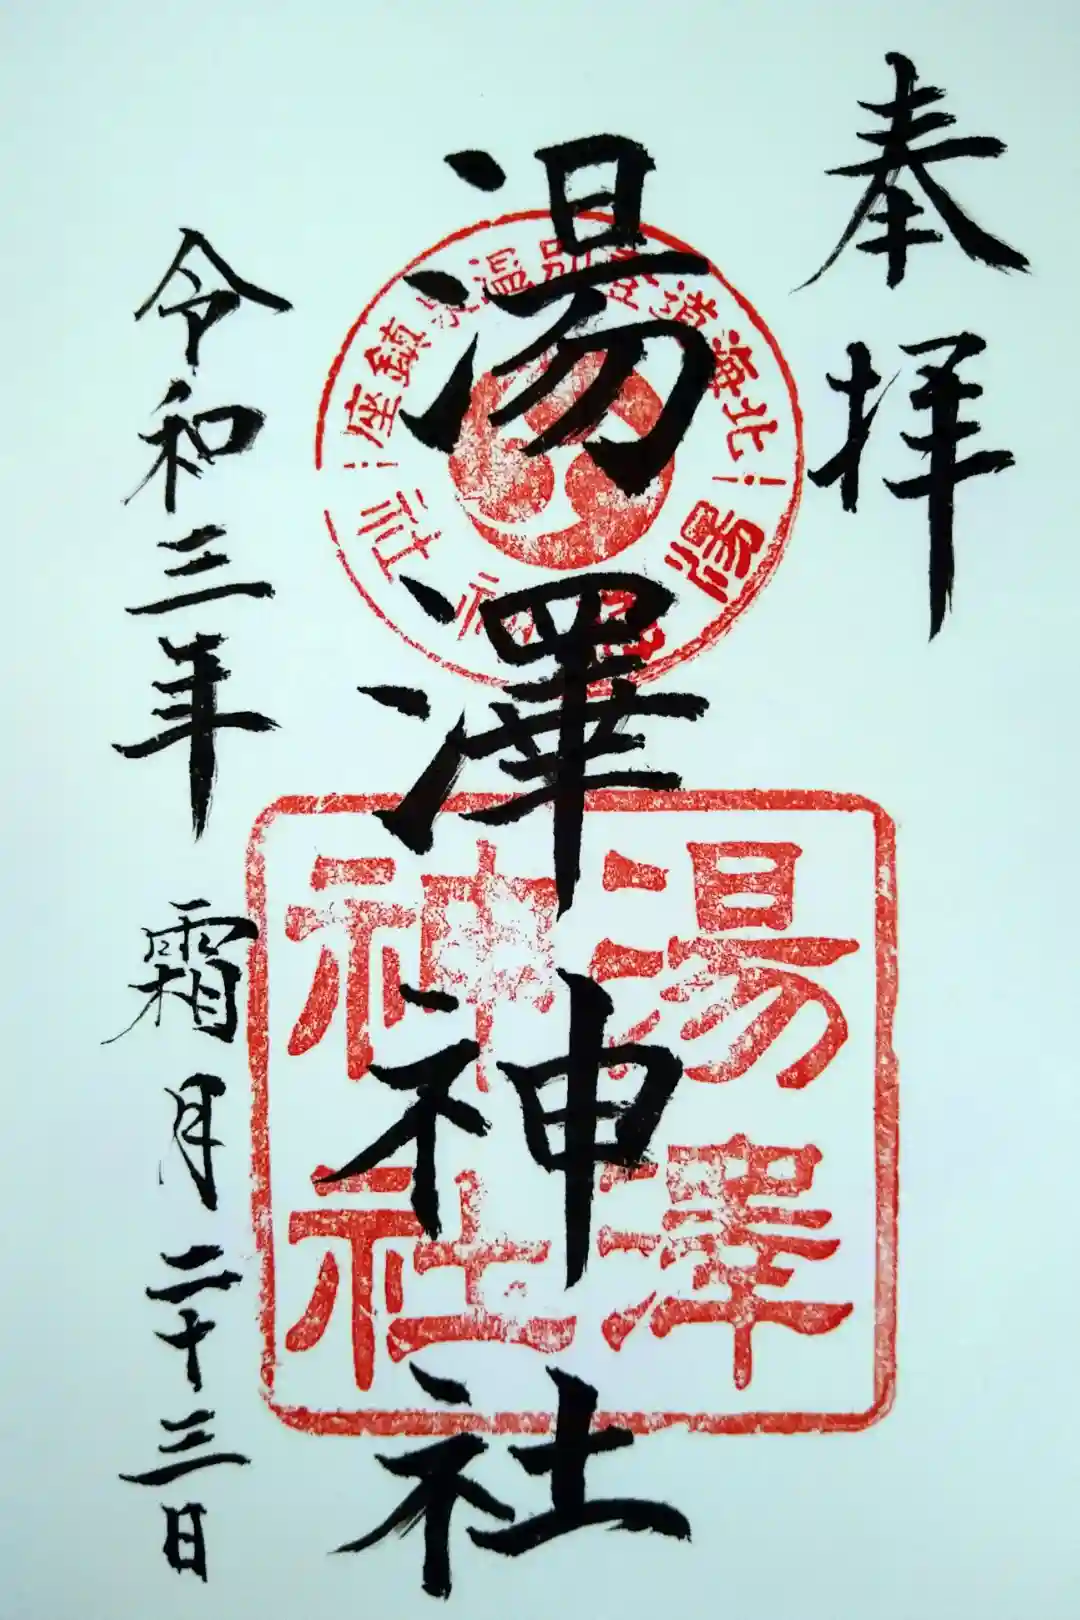 奉拝
湯澤神社
令和三年霜月二十三日
北海道登別温泉鎮座
湯澤神社
湯澤
神社